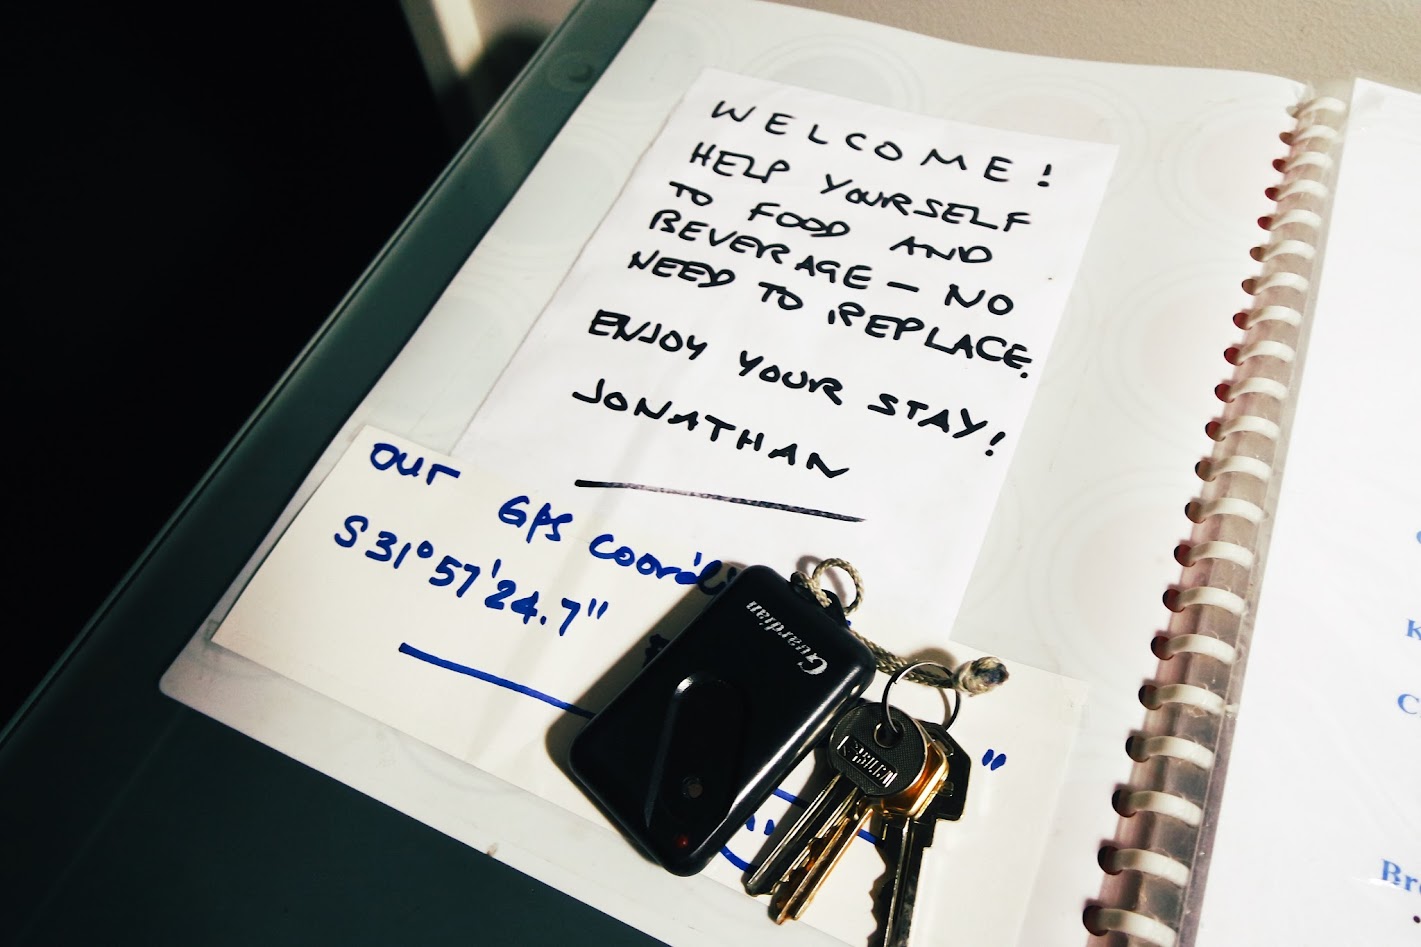 WELCOME!
HELP YOURSELF
TO FOOD AND
BEVERAGE – NO
NEED TO REPLACE.
ENJOY YOUR STAY!
JONATHAN
OUR GPS
S31°57'24.7"
"
Guardian
K
C
Bre